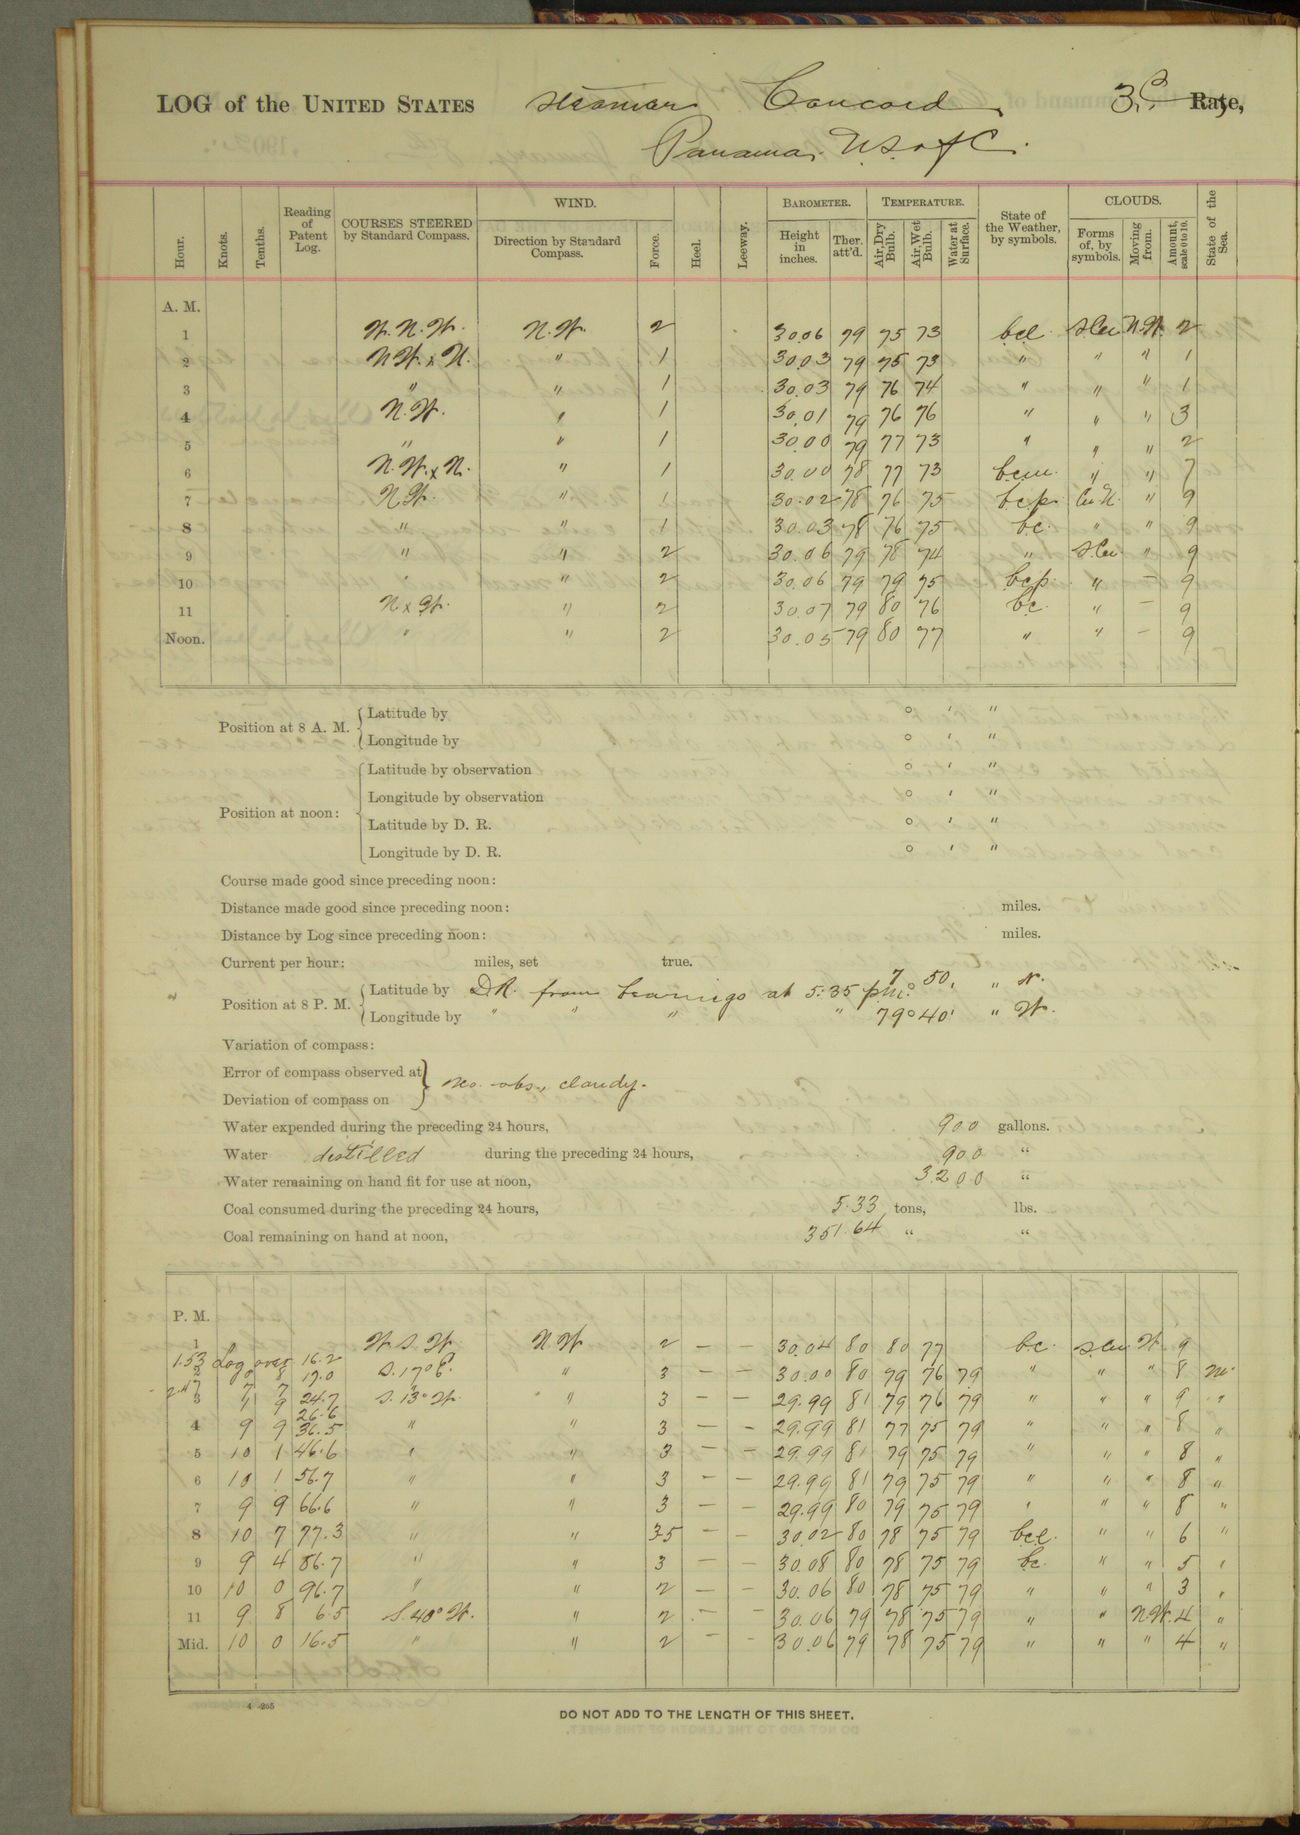 LOG of the UNITED STATES Steamer Concord, 3d Rate,
Panama, U.S. of C.
Hour. Knots. Tenths. Reading of Patent Log. COURSES STEERED by Standard Compass. WIND. Direction by Standard Compass. Force. Heel. Leeway. BAROMETER. Height in inches. Ther. att'd. TEMPERATURE. Air, Dry Bulb. Air, Wet Bulb. Water at Surface. State of the Weather, by symbols. CLOUDS. Forms of, by symbols. Moving from. Amount, scale 0 to 10. State of the Sea.
A. M.
1 W.N.W. N.W. 2 30.06 79 75 73 bcl s.cu N.W. 2
2 NW. x N. " 1 30.03 79 75 73 " " " 1
3 " " 1 30.03 79 76 74 " " " 1
4 N.W. " 1 30.01 79 76 76 " " " 3
5 " " 1 30.00 79 77 73 " " " 2
6 N.W. x N. " 1 30.00 78 77 73 bcm. " " 7
7 N.W. " 1 30.02 78 76 75 bcp. Cu N. " 9
8 " " 1 30.03 78 76 75 bc. " " 9
9 " " 2 30.06 79 78 74 " s.cu " 9
10 " " 2 30.06 79 79 75 bcp. " — 9
11 N x W. " 2 30.07 79 80 76 bc. " — 9
Noon. " " 2 30.05 79 80 77 " " — 9
Position at 8 A. M. Latitude by ° ' "
Longitude by ° ' "
Position at noon: Latitude by observation ° ' "
Longitude by observation ° ' "
Latitude by D. R. ° ' "
Longitude by D. R. ° ' "
Course made good since preceding noon:
Distance made good since preceding noon: miles.
Distance by Log since preceding noon: miles.
Current per hour: miles, set true.
Position at 8 P. M. Latitude by D.R. from bearings at 5:35 p.m. 7° 50' " N.
Longitude by " " " " 79° 40' " W.
Variation of compass:
Error of compass observed at
Deviation of compass on } no obs., cloudy.
Water expended during the preceding 24 hours, 900 gallons.
Water distilled during the preceding 24 hours, 900 "
Water remaining on hand fit for use at noon, 3200 "
Coal consumed during the preceding 24 hours, 5.33 tons, lbs.
Coal remaining on hand at noon, 351.64 " "
P. M.
1 W.S.W. N.W 2 — — 30.04 80 80 77 bc. s.cu W. 9
1.53 Log over 16.2
2 0 8 17.0 S.17° E. " 3 — — 30.00 80 79 76 79 " " " 8 m.
2.47 7 7 24.7
3 1 9 26.6 S.13° W. " 3 — — 29.99 81 79 76 79 " " " 9 "
4 9 9 36.5 " " 3 — — 29.99 81 77 75 79 " " " 8 "
5 10 1 46.6 " " 3 — — 29.99 81 79 75 79 " " " 8 "
6 10 1 56.7 " " 3 — — 29.99 81 79 75 79 " " " 8 "
7 9 9 66.6 " " 3 — — 29.99 80 79 75 79 " " " 8 "
8 10 7 77.3 " " 3-5 — — 30.02 80 78 75 79 bcl. " " 6 "
9 9 4 86.7 " " 3 — — 30.08 80 78 75 79 bc. " " 5 "
10 10 0 96.7 " " 2 — — 30.06 80 78 75 79 " " " 3 "
11 9 8 6.5 S.40° W. " 2 — — 30.06 79 78 75 79 " " N.W. 4 "
Mid. 10 0 16.5 " " 2 — — 30.06 79 78 75 79 " " " 4 "
4—265
DO NOT ADD TO THE LENGTH OF THIS SHEET.